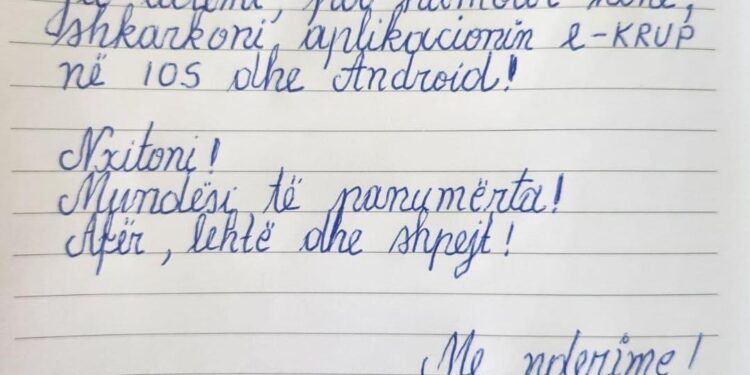 shkarkoni aplikacionin e-KRUP
në IOS dhe Android!
Nxitoni!
Mundësi të panumërta!
Afër, lehtë dhe shpejt!
Me nderime!